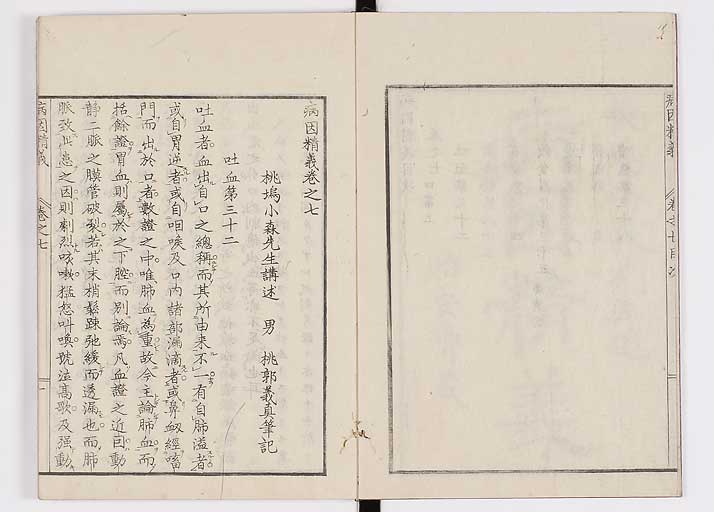 病因精義 卷之七目次
病因精義卷之七
桃塢小森先生講述 男 桃郭義真筆記
吐血第三十二
吐血者血出自口之總稱而其所由来不一有自肺溢者
或自胃逆者或自咽喉及口内諸部漏滴者或鼻衂經嗌
門而出於口者數證之中唯肺血為重故今主論肺血而
括餘證胃血則屬於之下腔而别論焉凡血證之近因動
靜二脈之膜管破裂若其末梢鬆踈弛緩而透漏也而肺
脈致此患之因則劇烈咳嗽猛怒叫喚號泣高歌及强動
病因精義 卷之七 一